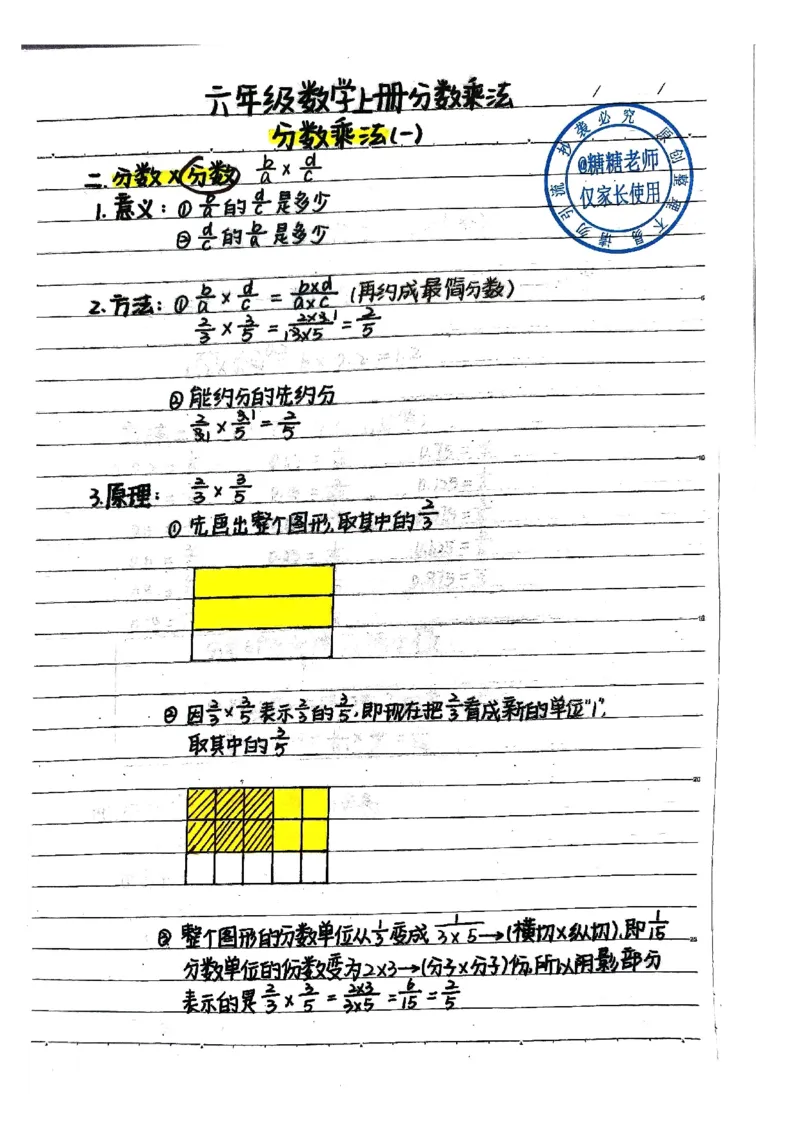 六年级数学上册分数乘法
分数乘法(一)
二.分数×分数 b/a × d/c
1.意义：① b/a的d/c是多少
② d/c的b/a是多少
2.方法：① b/a × d/c = b×d/a×c (再约成最简分数)
2/3 × 3/5 = 2×3 1/1 3×5 = 2/5
② 能约分的先约分
2/3 1 × 3 1/5 = 2/5
3.原理： 2/3 × 3/5
① 先画出整个图形,取其中的2/3
② 因2/3×3/5表示2/3的3/5,即现在把2/3看成新的单位"1",
取其中的2/5
③ 整个图形的分数单位从1/3变成 1/3×5→(横切×纵切),即1/15
分数单位的份数变为2×3→(分子×分子)份,所以阴影部分
表示的是2/3 × 3/5 = 2×3/3×5 = 6/15 = 2/5
抄袭必究 原创整理不易 请勿引流
@糖糖老师
仅家长使用
5
10
15
20
25